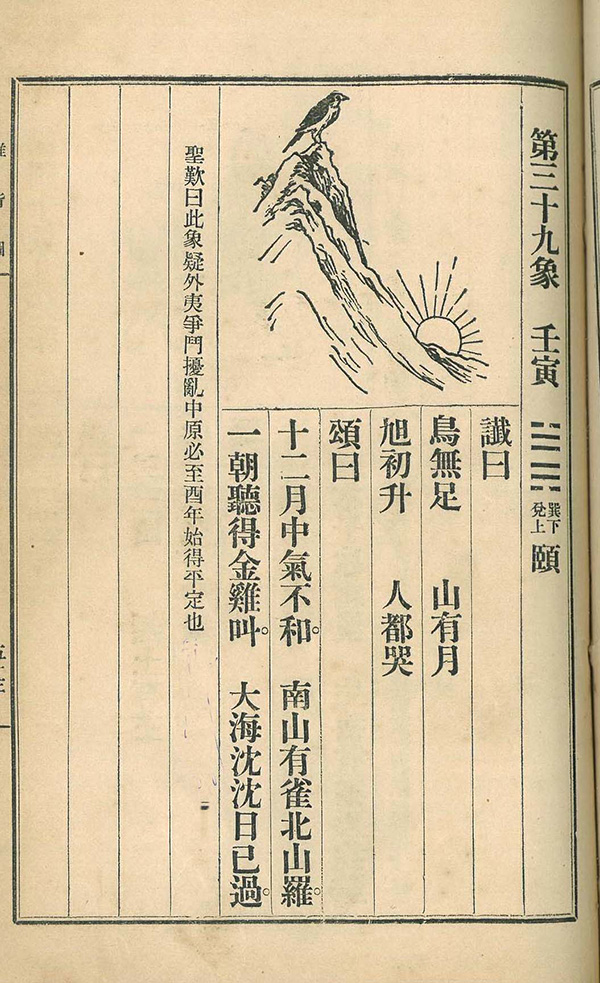 第三十九象 壬寅 巽下兌上 頤
讖曰
鳥無足 山有月
旭初升 人都哭
頌曰
十二月中氣不和。 南山有雀北山羅。
一朝聽得金雞叫。 大海沈沈日已過。
聖歎曰此象疑外夷爭鬥擾亂中原必至酉年始得平定也